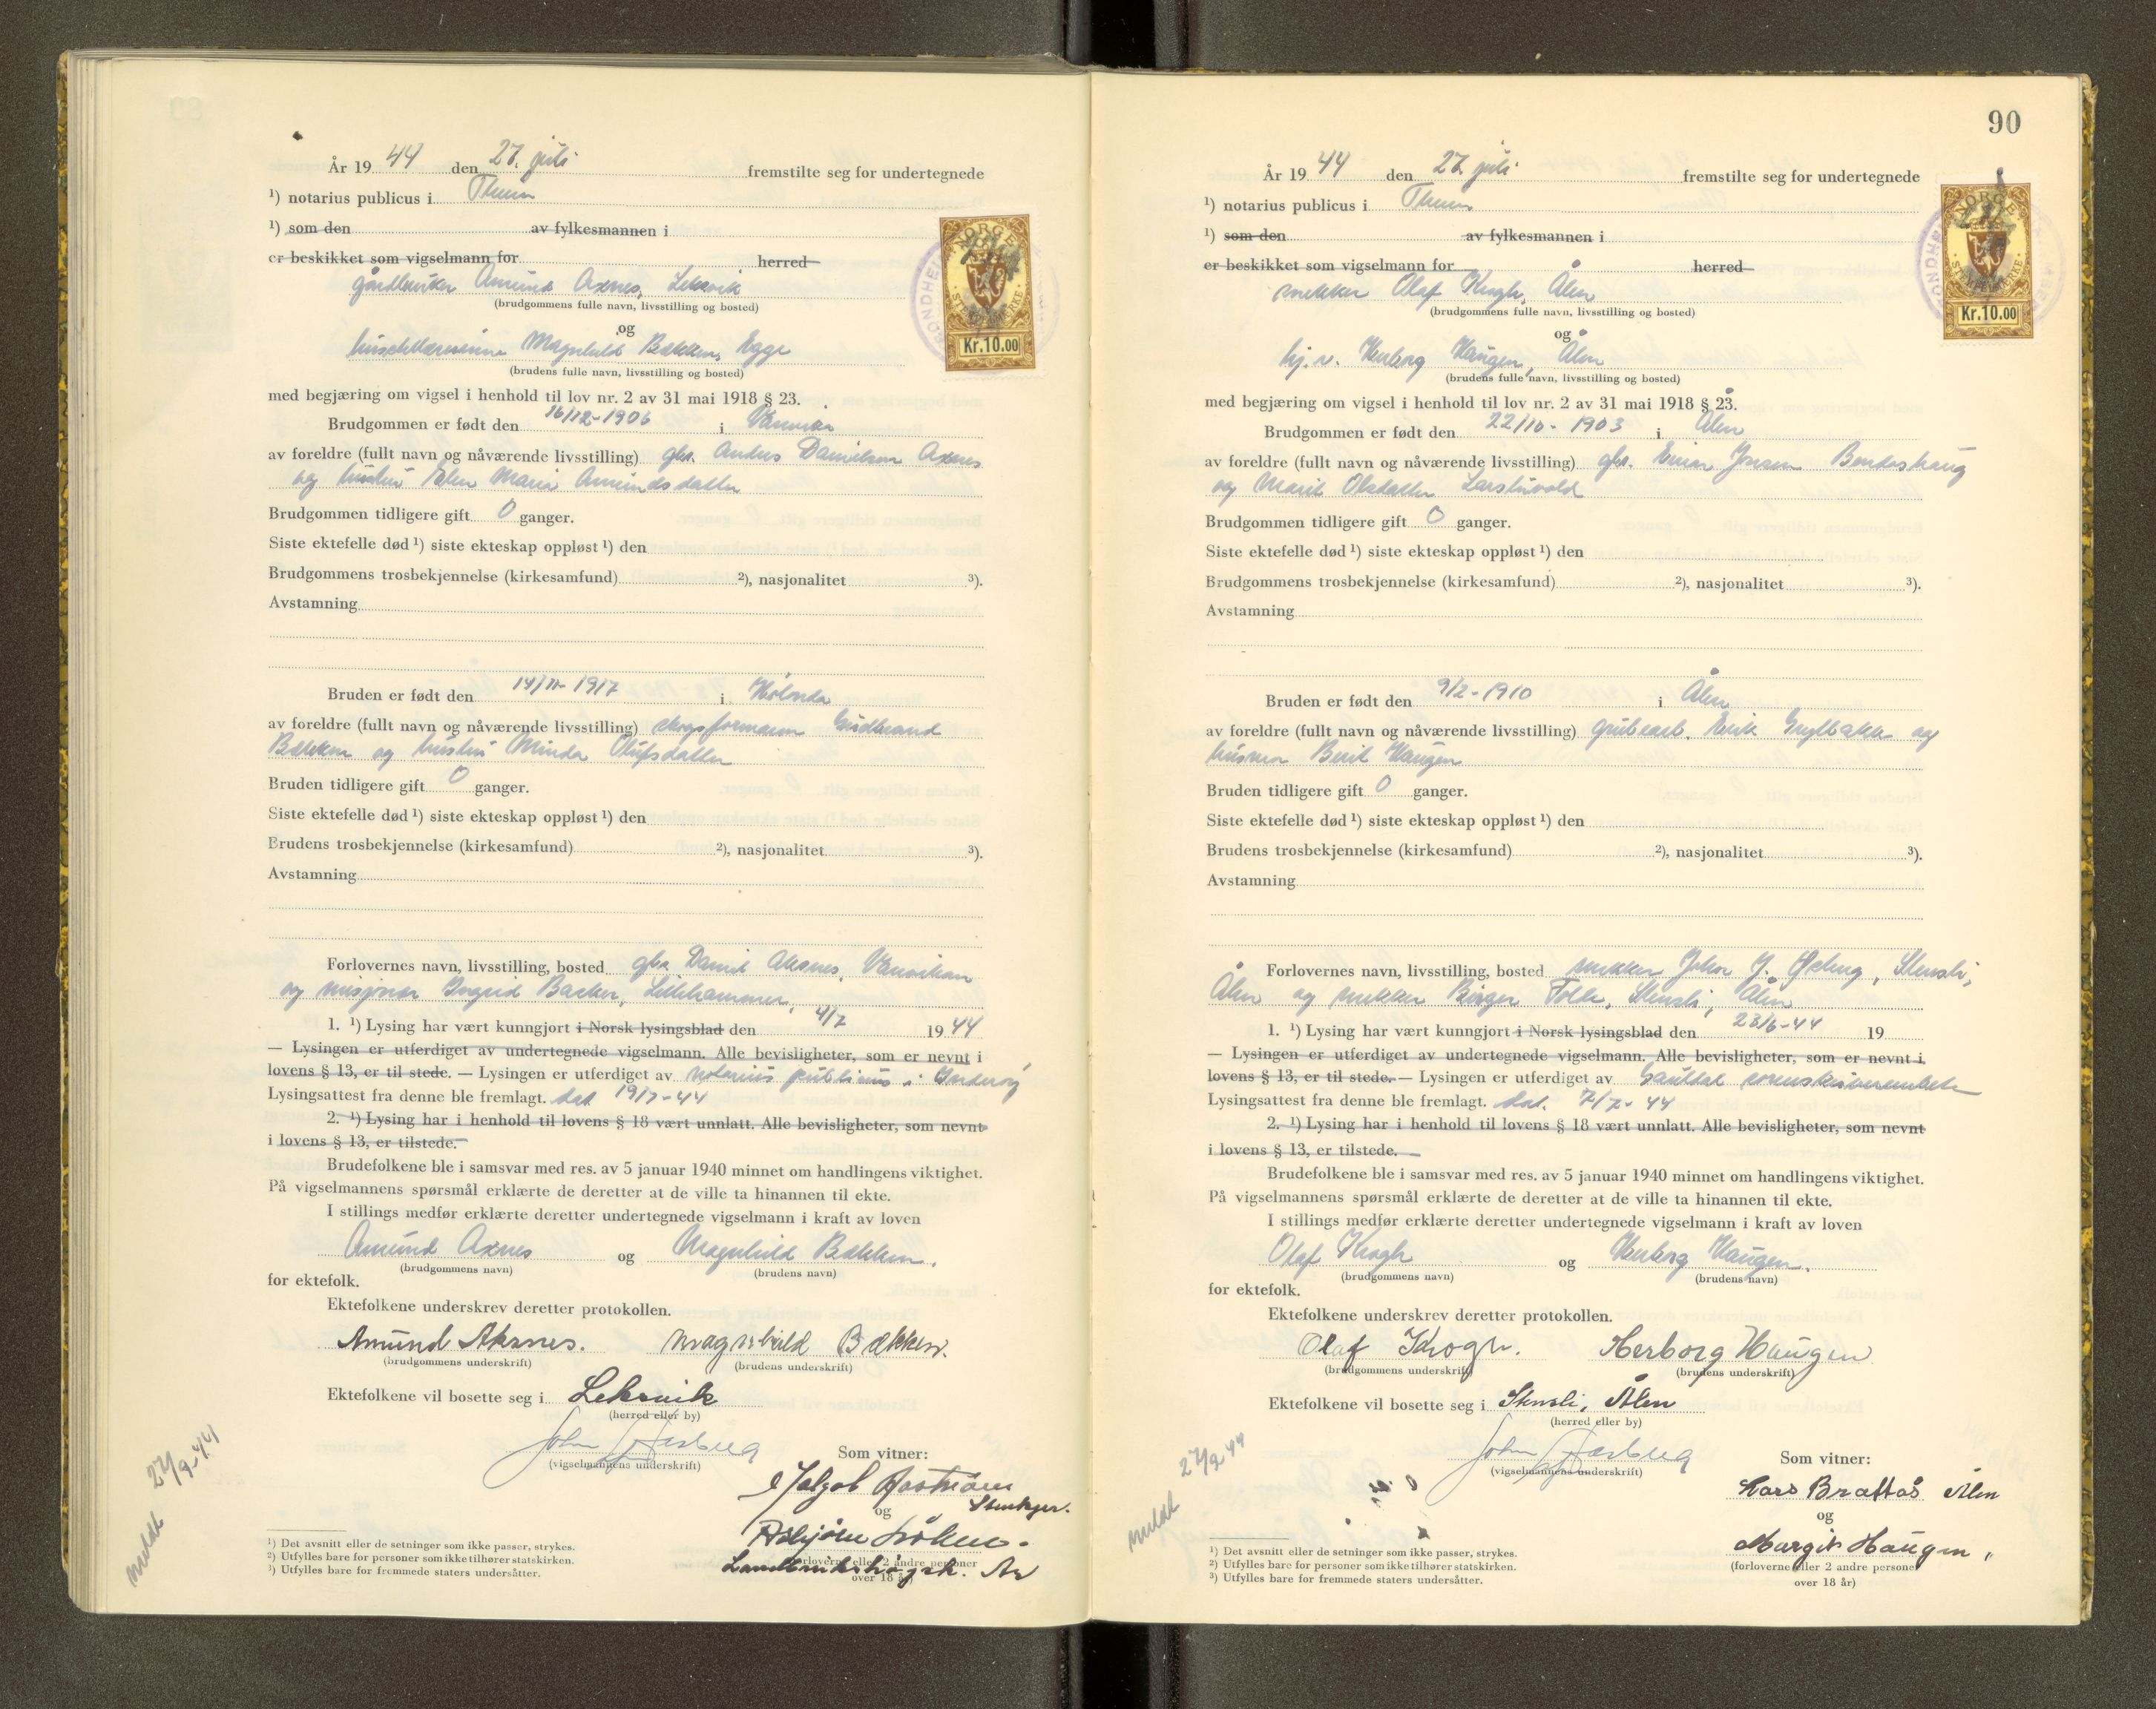 År 19 44 den 27. juli fremstilte seg for undertegnede
¹) notarius publicus i Thum
¹) som den av fylkesmannen i
er beskikket som vigselmann for herred
gårdbruker Amund Axnes, Leksvik
(brudgommens fulle navn, livsstilling og bosted)
og
Magnhild Bækken, Egge
(brudens fulle navn, livsstilling og bosted)
NORGE
STEMPELMERKE
Kr.10.00
med begjæring om vigsel i henhold til lov nr. 2 av 31 mai 1918 § 23.
Brudgommen er født den 16/12-1906 i
av foreldre (fullt navn og nåværende livsstilling) gbr. Anders Danielsen Axnes
og hustru Elen Maria Amundsdatter
Brudgommen tidligere gift 0 ganger.
Siste ektefelle død ¹) siste ekteskap oppløst ¹) den
Brudgommens trosbekjennelse (kirkesamfund) ²), nasjonalitet ³).
Avstamning
Bruden er født den 1917 i Hølonda
av foreldre (fullt navn og nåværende livsstilling) skogsformann Gudbrand
Bækken og hustru Minda Olufsdatter
Bruden tidligere gift 0 ganger.
Siste ektefelle død ¹) siste ekteskap oppløst ¹) den
Brudens trosbekjennelse (kirkesamfund) ²), nasjonalitet ³).
Avstamning
Forlovernes navn, livsstilling, bosted gbr. Daniel Aksnes, Vanvikan
og misjonær Ingrid Backer, Lillehammer,
1. ¹) Lysing har vært kunngjort i Norsk lysingsblad den 4/7 19 44
— Lysingen er utferdiget av undertegnede vigselmann. Alle bevisligheter, som er nevnt i
lovens § 13, er til stede. — Lysingen er utferdiget av notarius publicus i Inderøy
Lysingsattest fra denne ble fremlagt. dat. 19/7-44
2. ¹) Lysing har i henhold til lovens § 18 vært unnlatt. Alle bevisligheter, som nevnt
i lovens § 13, er tilstede.
Brudefolkene ble i samsvar med res. av 5 januar 1940 minnet om handlingens viktighet.
På vigselmannens spørsmål erklærte de deretter at de ville ta hinannen til ekte.
I stillings medfør erklærte deretter undertegnede vigselmann i kraft av loven
Amund Axnes og Magnhild Bækken.
(brudgommens navn) (brudens navn)
for ektefolk.
Ektefolkene underskrev deretter protokollen.
Amund Aksnes. Magnhild Bækken.
(brudgommens underskrift) (brudens underskrift)
Ektefolkene vil bosette seg i Leksvik
(herred eller by)
John Aasberg
(vigselmannens underskrift)
Som vitner:
og
Asbjørn
(forloverne eller 2 andre personer
over 18 år)
meldt 27/9-44
¹) Det avsnitt eller de setninger som ikke passer, strykes.
²) Utfylles bare for personer som ikke tilhører statskirken.
³) Utfylles bare for fremmede staters undersåtter.
90
År 19 44 den 27. juli fremstilte seg for undertegnede
¹) notarius publicus i Thum
¹) som den av fylkesmannen i
er beskikket som vigselmann for herred
snekker Olaf Krogh, Ålen
(brudgommens fulle navn, livsstilling og bosted)
og
hj.v. Herborg Haugen, Ålen
(brudens fulle navn, livsstilling og bosted)
NORGE
STEMPELMERKE
Kr.10.00
med begjæring om vigsel i henhold til lov nr. 2 av 31 mai 1918 § 23.
Brudgommen er født den 22/10-1903 i Ålen
av foreldre (fullt navn og nåværende livsstilling) gbr. Einar Jensen
og Marit Olsdatter
Brudgommen tidligere gift 0 ganger.
Siste ektefelle død ¹) siste ekteskap oppløst ¹) den
Brudgommens trosbekjennelse (kirkesamfund) ²), nasjonalitet ³).
Avstamning
Bruden er født den 9/2-1910 i Ålen
av foreldre (fullt navn og nåværende livsstilling) grubearb. Erik Grytbakk og
hustru Berit Haugen
Bruden tidligere gift 0 ganger.
Siste ektefelle død ¹) siste ekteskap oppløst ¹) den
Brudens trosbekjennelse (kirkesamfund) ²), nasjonalitet ³).
Avstamning
Forlovernes navn, livsstilling, bosted snekker Johan J. Stensli,
Ålen og snekker Birger Stensli, Ålen
1. ¹) Lysing har vært kunngjort i Norsk lysingsblad den 23/6-44 19
— Lysingen er utferdiget av undertegnede vigselmann. Alle bevisligheter, som er nevnt i
lovens § 13, er til stede. — Lysingen er utferdiget av Gauldal sorenskriverembete
Lysingsattest fra denne ble fremlagt. dat. 7/7-44
2. ¹) Lysing har i henhold til lovens § 18 vært unnlatt. Alle bevisligheter, som nevnt
i lovens § 13, er tilstede.
Brudefolkene ble i samsvar med res. av 5 januar 1940 minnet om handlingens viktighet.
På vigselmannens spørsmål erklærte de deretter at de ville ta hinannen til ekte.
I stillings medfør erklærte deretter undertegnede vigselmann i kraft av loven
Olaf Krogh og Herborg Haugen.
(brudgommens navn) (brudens navn)
for ektefolk.
Ektefolkene underskrev deretter protokollen.
Olaf Krogh. Herborg Haugen
(brudgommens underskrift) (brudens underskrift)
Ektefolkene vil bosette seg i Stensli, Ålen
(herred eller by)
John Aasberg
(vigselmannens underskrift)
Som vitner:
Hans Brattås Ålen
og
Margit Haugen "
(forloverne eller 2 andre personer
over 18 år)
meldt 27/9-44
¹) Det avsnitt eller de setninger som ikke passer, strykes.
²) Utfylles bare for personer som ikke tilhører statskirken.
³) Utfylles bare for fremmede staters undersåtter.